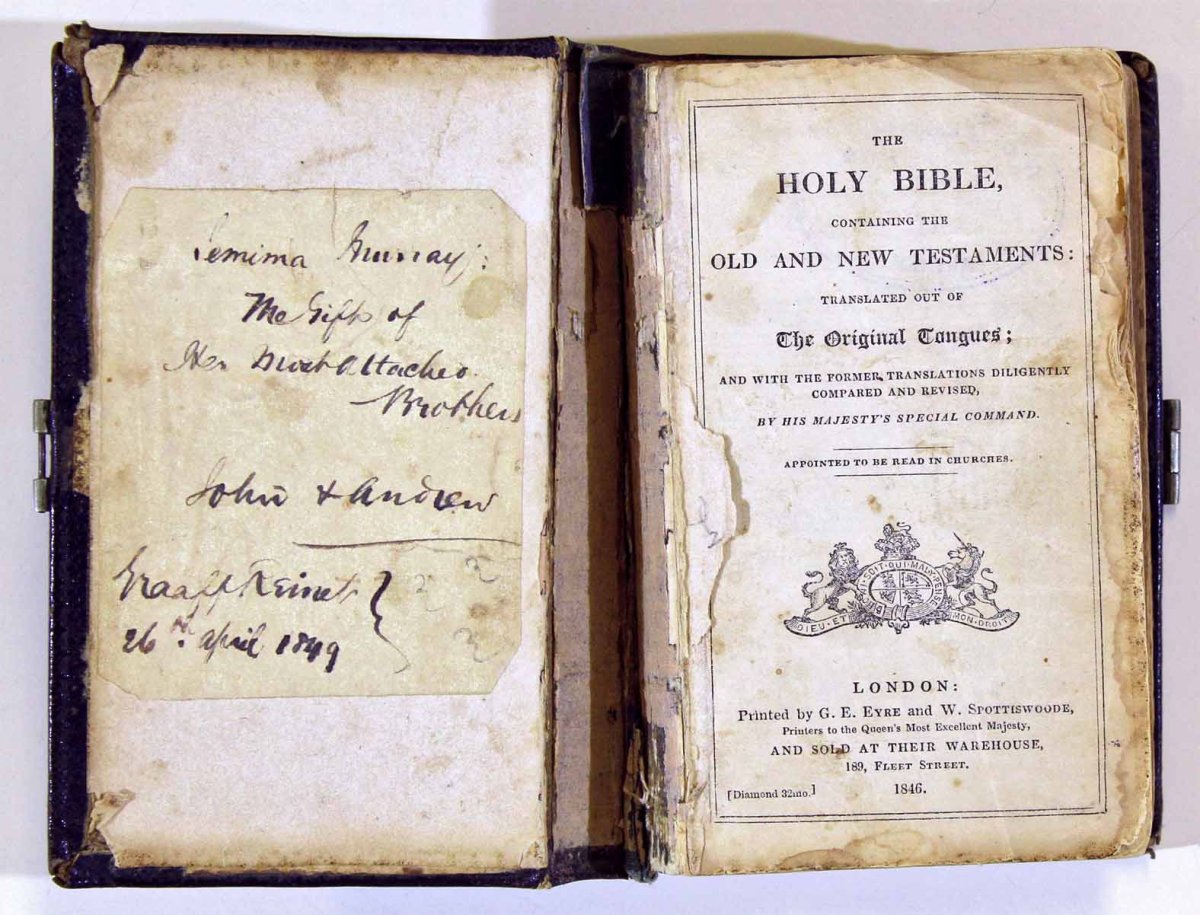 Jemima Murray:
The Gift of
Her Most Attached
Brothers
John & Andrew
Graaff Reinet
26th April 1849
2 2
2
THE
HOLY BIBLE,
CONTAINING THE
OLD AND NEW TESTAMENTS:
TRANSLATED OUT OF
The Original Tongues;
AND WITH THE FORMER TRANSLATIONS DILIGENTLY
COMPARED AND REVISED,
BY HIS MAJESTY'S SPECIAL COMMAND.
APPOINTED TO BE READ IN CHURCHES.
HONI SOIT QUI MAL Y PENSE
DIEU ET MON DROIT
LONDON:
Printed by G. E. EYRE and W. SPOTTISWOODE,
Printers to the Queen's Most Excellent Majesty,
AND SOLD AT THEIR WAREHOUSE,
189, FLEET STREET.
[Diamond 32mo.] 1846.